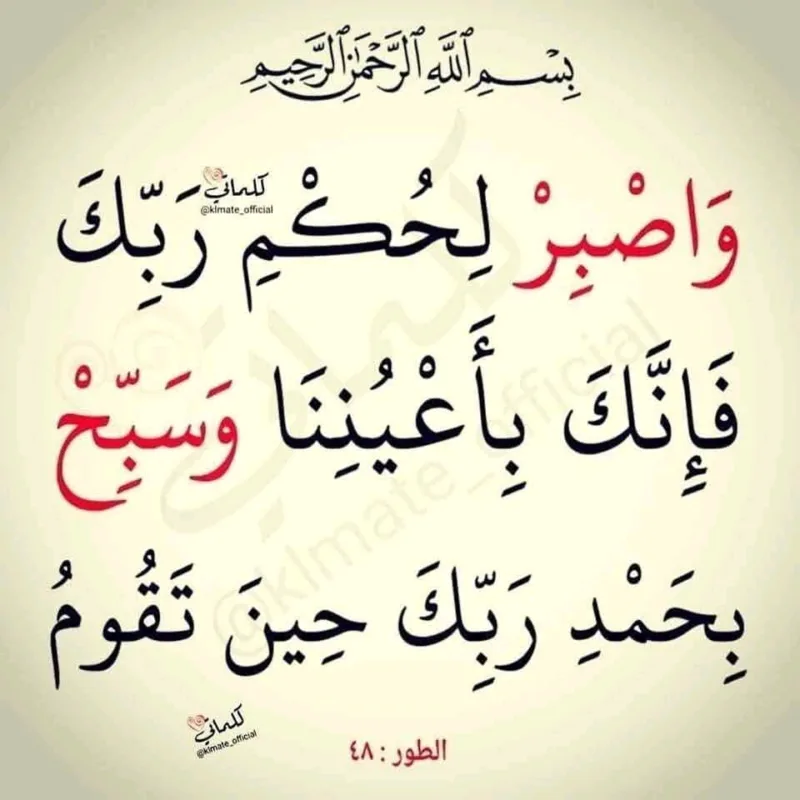 بِسْمِ ٱللَّهِ ٱلرَّحْمَٰنِ ٱلرَّحِيمِ
كلماتي
@klmate_official
وَاصْبِرْ لِحُكْمِ رَبِّكَ
فَإِنَّكَ بِأَعْيُنِنَا وَسَبِّحْ
بِحَمْدِ رَبِّكَ حِينَ تَقُومُ
كلماتي
@klmate_official
كلماتي
@klmate_official
الطور : ٤٨